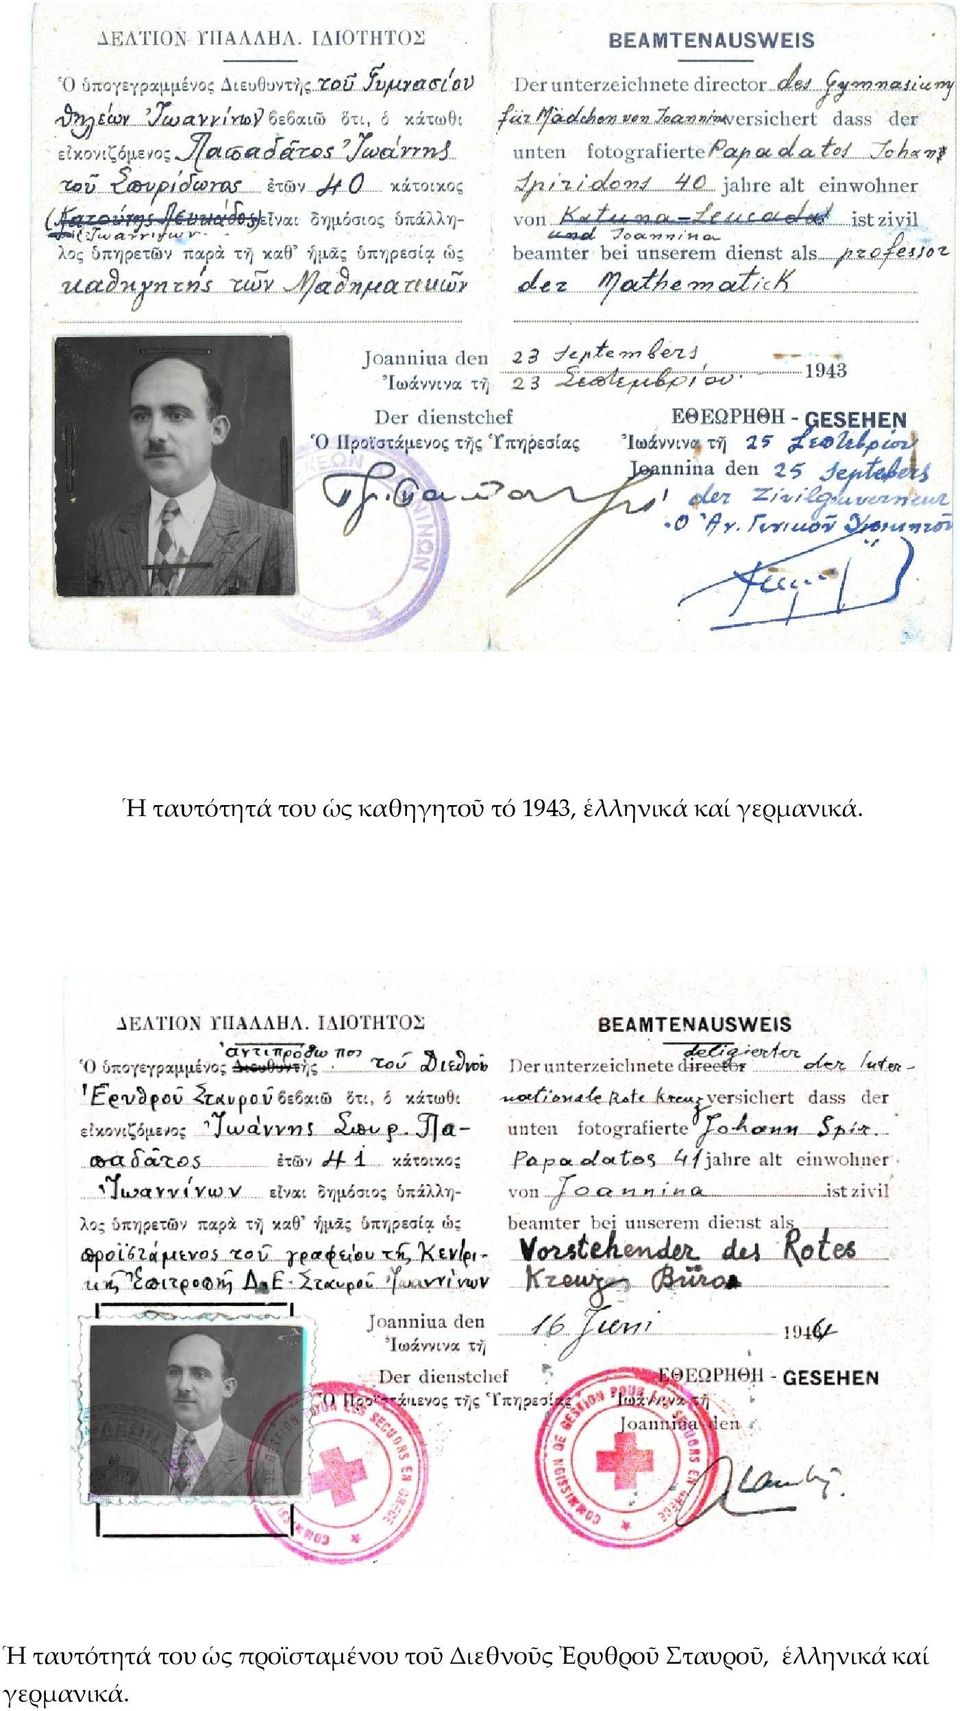 ΔΕΛΤΙΟΝ ΥΠΑΛΛΗΛ. ΙΔΙΟΤΗΤΟΣ
Ὁ ὑπογεγραμμένος Διευθυντὴς τοῦ Γυμνασίου
Θηλέων Ἰωαννίνων βεβαιῶ ὅτι, ὁ κάτωθι
εἰκονιζόμενος Παπαδάτος Ἰωάννης
τοῦ Σπυρίδωνος ἐτῶν 40 κάτοικος
(Κατούνης Λευκάδος) εἶναι δημόσιος ὑπάλλη-
καὶ Ἰωαννίνων
λος ὑπηρετῶν παρὰ τῇ καθ' ἡμᾶς ὑπηρεσίᾳ ὡς
καθηγητὴς τῶν Μαθηματικῶν
BEAMTENAUSWEIS
Der unterzeichnete director des Gymnasiums
für Mädchen von Joannina versichert dass der
unten fotografierte Papadatos Johann
Spiridons 40 jahre alt einwohner
von Katuna-Leucadas ist zivil
und Joannina
beamter bei unserem dienst als professor
der Mathematick
Joannina den 23 Septembers
Ἰωάννινα τῇ 23 Σεπτεμβρίου 1943
Der dienstchef
Ὁ Προϊστάμενος τῆς Ὑπηρεσίας
ΕΘΕΩΡΗΘΗ - GESEHEN
Ἰωάννινα τῇ 25 Σεπτεβρίου
Joannina den 25 Septebers
der Zivilguverneur
Ὁ Ἀν. Γενικοῦ Διοικητοῦ
Ἡ ταυτότητά του ὡς καθηγητοῦ τό 1943, ἑλληνικά καί γερμανικά.
ΔΕΛΤΙΟΝ ΥΠΑΛΛΗΛ. ΙΔΙΟΤΗΤΟΣ
ἀντιπρόσωπος
Ὁ ὑπογεγραμμένος Διευθυντὴς τοῦ Διεθνοῦ
Ἐρυθροῦ Σταυροῦ βεβαιῶ ὅτι, ὁ κάτωθι
εἰκονιζόμενος Ἰωάννης Σπυρ. Πα-
παδάτος ἐτῶν 41 κάτοικος
Ἰωαννίνων εἶναι δημόσιος ὑπάλλη-
λος ὑπηρετῶν παρὰ τῇ καθ' ἡμᾶς ὑπηρεσίᾳ ὡς
προϊστάμενος τοῦ γραφείου τῆς Κεντρι-
κῆς Ἐπιτροπῆς Δ.Ε. Σταυροῦ Ἰωαννίνων
BEAMTENAUSWEIS
deligierter
Der unterzeichnete director der Inter-
nationale Rote Kreuz versichert dass der
unten fotografierte Johann Spir.
Papadatos 41 jahre alt einwohner
von Joannina ist zivil
beamter bei unserem dienst als
Vorstehender des Rotes
Kreuzes Büros
Joannina den 16 Juni 1944
Ἰωάννινα τῇ
Der dienstchef
Ὁ Προϊστάμενος τῆς Ὑπηρεσίας
ΕΘΕΩΡΗΘΗ - GESEHEN
Ἰωάννινα τῇ
Joannina den
COMMISSION DE GESTION POUR LES SECOURS EN GRECE
Ἡ ταυτότητά του ὡς προϊσταμένου τοῦ Διεθνοῦς Ἐρυθροῦ Σταυροῦ, ἑλληνικά καί
γερμανικά.